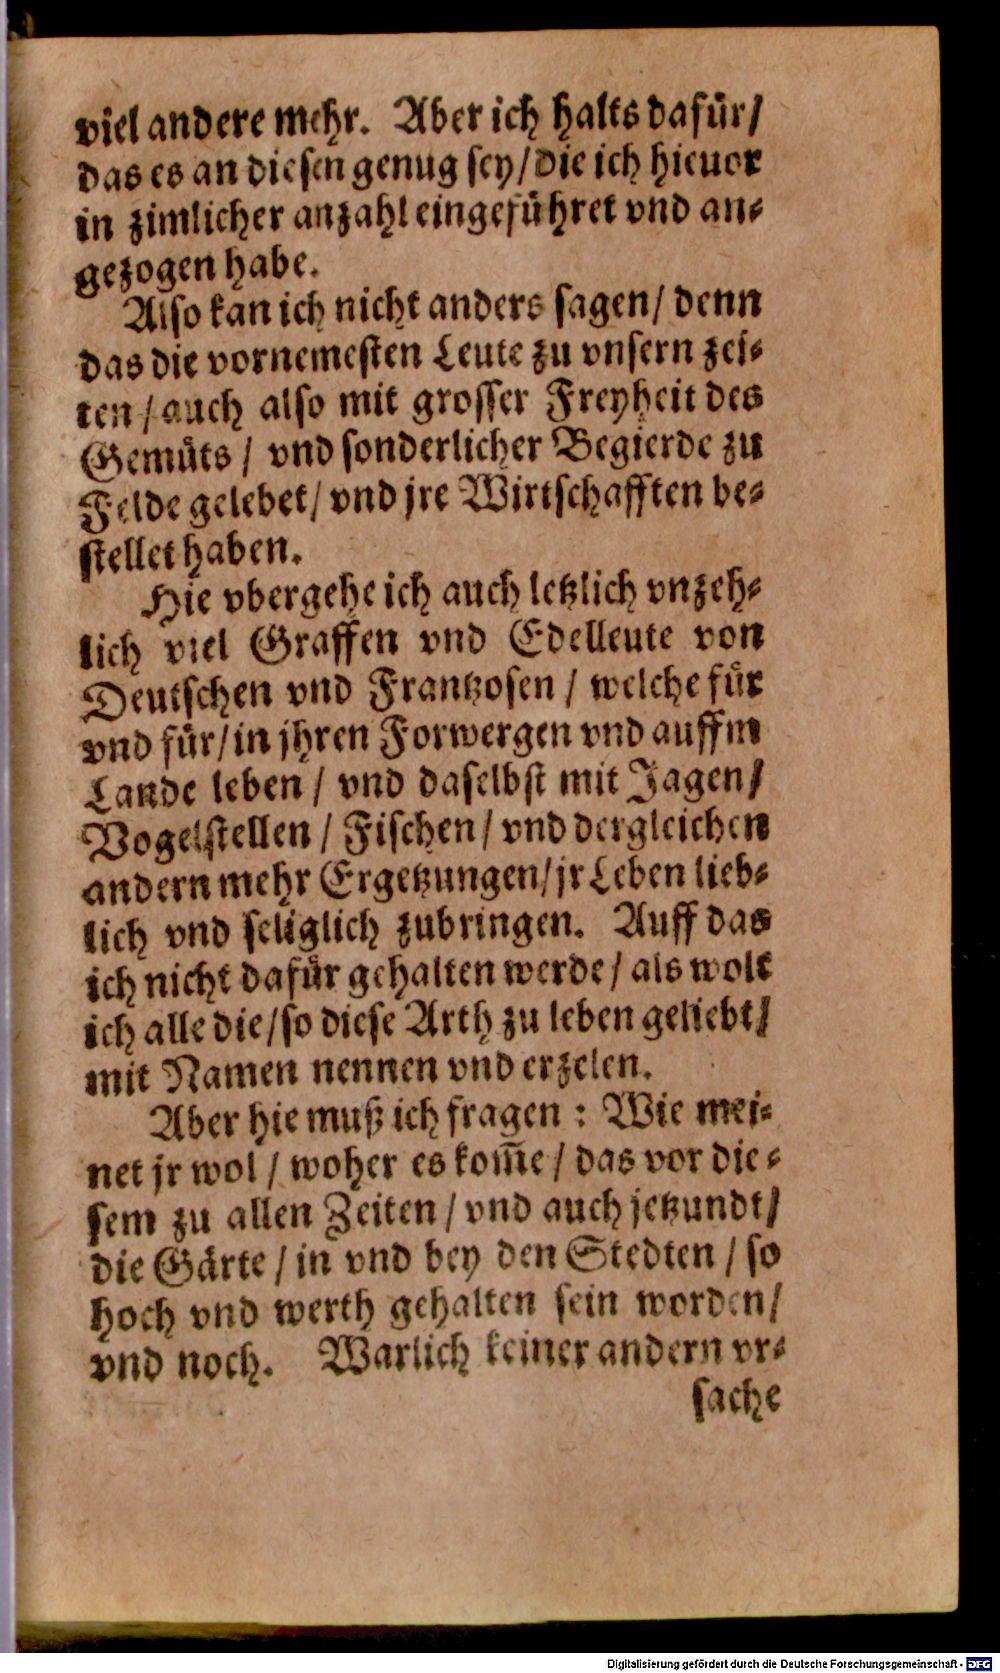 viel andere mehr. Aber ich halts dafür/
das es an diesen genug sey/die ich hieuor
in zimlicher anzahl eingeführet vnd an-
gezogen habe.
Also kan ich nicht anders sagen/ denn
das die vornemesten Leute zu vnsern zei-
ten/auch also mit grosser Freyheit des
Gemüts/ vnd sonderlicher Begierde zu
Felde gelebet/ vnd jre Wirtschafften be-
stellet haben.
Hie vbergehe ich auch letzlich vnzeh-
lich viel Graffen vnd Edelleute von
Deutschen vnd Frantzosen/ welche für
vnd für/in jhren Forwergen vnd auffm
Lande leben/ vnd daselbst mit Jagen/
Vogelstellen/ Fischen/ vnd dergleichen
andern mehr Ergetzungen/jr Leben lieb-
lich vnd seliglich zubringen. Auff das
ich nicht dafür gehalten werde/ als wolt
ich alle die/so diese Arth zu leben geliebt/
mit Namen nennen vnd erzelen.
Aber hie muß ich fragen: Wie mei-
net jr wol/ woher es kom̃e/ das vor die-
sem zu allen Zeiten/ vnd auch jetzundt/
die Gärte/ in vnd bey den Stedten/ so
hoch vnd werth gehalten sein worden/
vnd noch. Warlich keiner andern vr-
sache
Digitalisierung gefördert durch die Deutsche Forschungsgemeinschaft - DFG